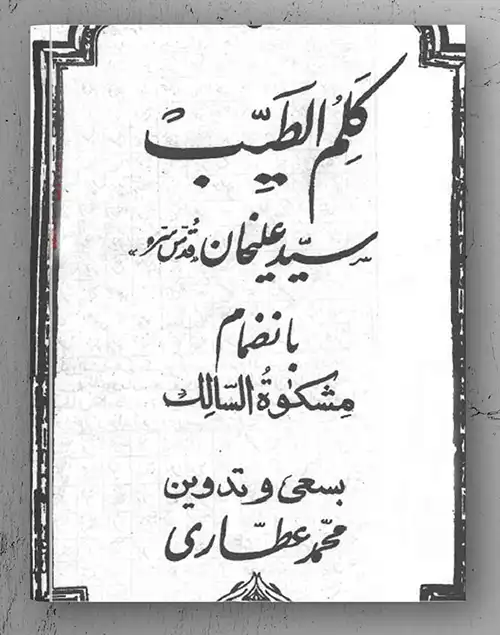 کَلِمُ الطَیِّبْ
سیّد علیخان «قُدّسَ سِرُّه»
بانضمام
مِشکوٰةُ السّالِك
بسعی و تدوین
محمّد عطّاری